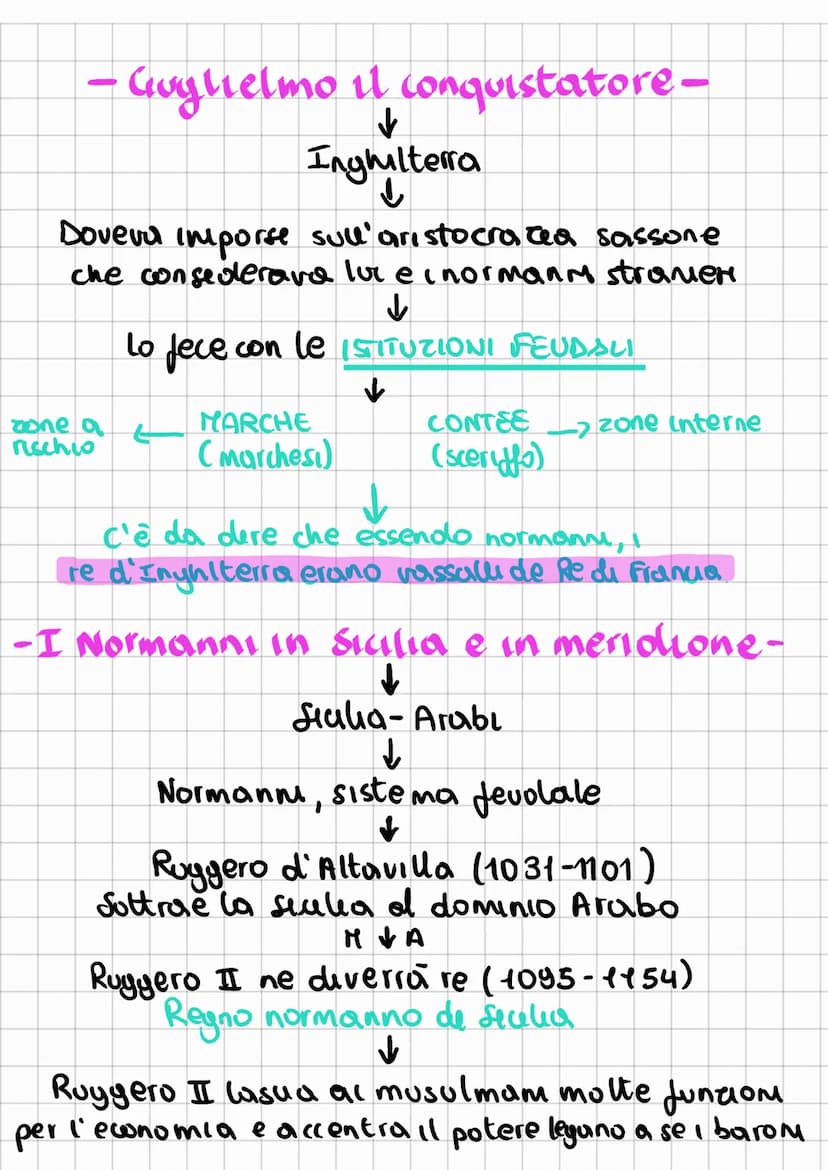 - Guglielmo il conquistatore -
↓
Inghilterra
↓
Doveva imporse sull'aristocrazia sassone
che considerava lui e i normanni stranieri
↓
lo fece con le ISTITUZIONI FEUDALI
↓
zone a ← MARCHE CONTEE → zone interne
rischio (marchesi) (sceriffo)
↓
C'è da dire che essendo normanni, i
re d'Inghilterra erano vassalli de Re di Francia
- I Normanni in Sicilia e in meridione -
↓
Sicilia - Arabi
↓
Normanni, sistema feudale
↓
Ruggero d'Altavilla (1031-1101)
Sottrae la Sicilia al dominio Arabo
M ↓ A
Ruggero II ne diverrà re (1095-1154)
Regno normanno di Sicilia
↓
Ruggero II lascia ai musulmani molte funzioni
per l'economia e accentra il potere legano a se i baroni